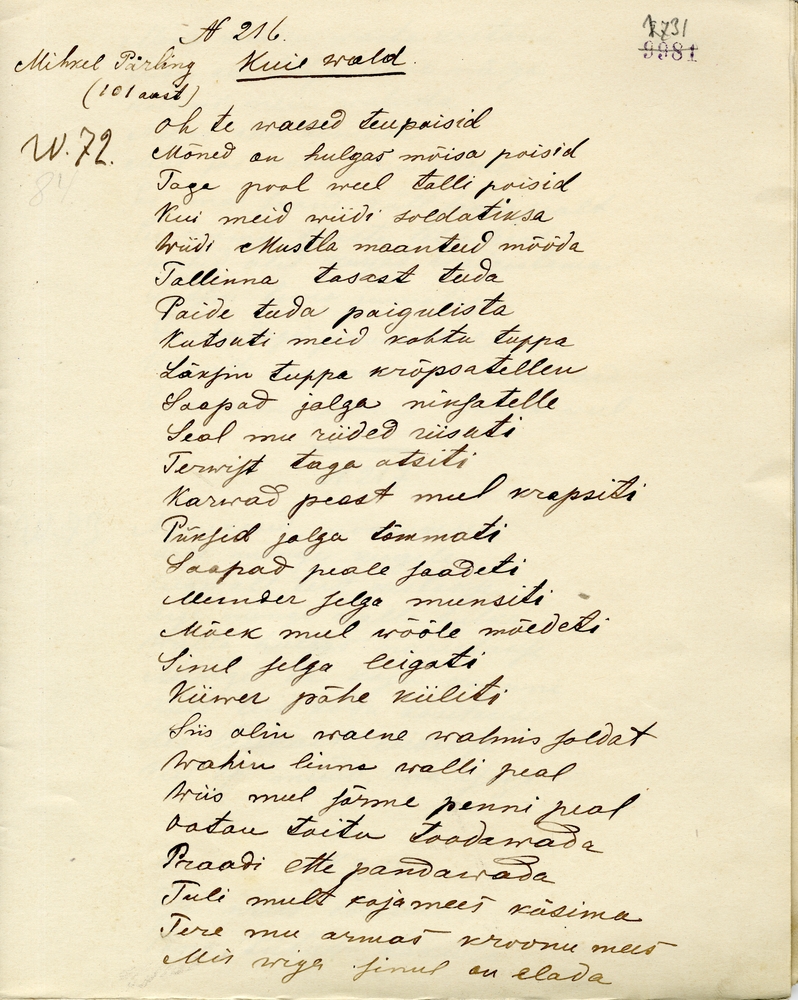 N 216.
1731
9981
Mihkel Pärling Kuie wald.
(101 aast)
W. 72.
Oh te waesed teupoisid
Mõned on hulgas mõisa poisid
Taga pool weel talli poisid
Kui meid wiidi soldatiksa
Wiidi Mustla maanteed mööda
Tallinna tasast teeda
Paide teeda paigulista
Kutsuti meid kohtu tuppa
Läksin tuppa kröpsatelleu
Saapad jalga niksatelle
Seal mu riided riisuti
Terwist taga otsiti
Karwad peast meel krapsiti
Püksid jalga tõmmati
Saapad peale saadeti
Meunder selga meunsiti
Mõek meel wööle mõedeti
Sinel selga leigati
Kiiwer pähe kiiliti
Siis olin waene walmis soldat
Wahin linna walli peal
Wiis meel sõrme penni peal
Ootan toitu toodawada
Praadi ette pandawada
Tuli mult majamees küsima
Tere mu armas kroonu mees
Mis wiga sinul on elada